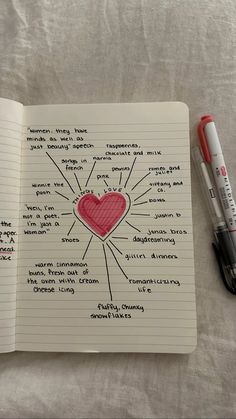 "women, they have
minds as well as
just beauty" speech
raspberries,
chocolate and milk
songs in
french
narnia
pink
peonies
romeo and
juliet
winnie the
pooh
things I love
tiffany and
co.
boxes
"Well, I'm
not a poet,
I'm just a
woman"
justin b
shoes
jonas bros
daydreaming
girls dinners
warm cinnamon
buns, fresh out of
the oven with cream
cheese icing
romanticizing
life
fluffy, chunky
snowflakes
the